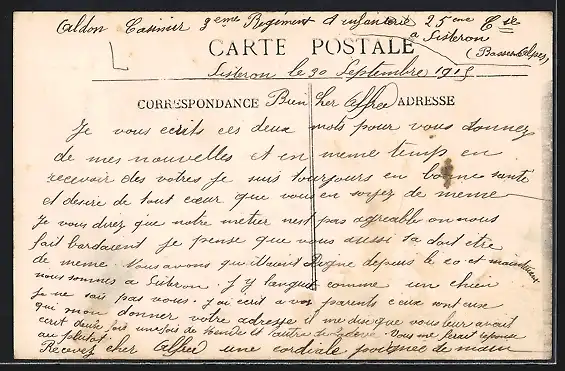 Aldon Casimir 3eme Regiment d'infanterie 25eme Cie
a Sisteron
(Basses Alpes)
CARTE POSTALE
Sisteron le 30 Septembre 1915
CORRESPONDANCE Bien cher Alfred ADRESSE
Je vous ecrits ces deux mots pour vous donner
de mes nouvelles et en meme temp en
recevoir des votres je suis toujours en bonne sante
et desire de tout cœur que vous en soyez de meme
Je vous direz que notre metier nest pas agreable on nous
fait barder je pense que vous aussi sa doit etre
de meme. Nous avons quitté Digne depuis le 20 et maintenant
nous sommes a Sisteron. J y languit comme un chien
je ne sait pas vous. j ai ecrit a vos parents ceux sont eux
qui mon donner votre adresse il me dise que vous leur avait
ecrit deux fois une fois de et l'autre de Vous me ferait reponse
au plutot.
Recevez cher Alfred une cordiale poignee de main